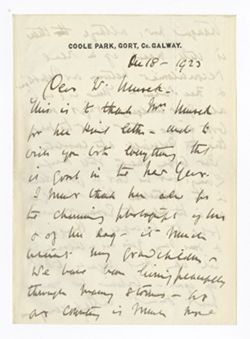 COOLE PARK, GORT, Co. GALWAY.
Dec 18 - 1923
Dear Dr
This is to thank Mrs
for her kind letter - and to
wish you both everything that
is good in the new Year.
I must thank her also for
the charming photograph of her
& of the dog - it
my grandchildren -
We have been living peacefully
through many storms -
our country is much more